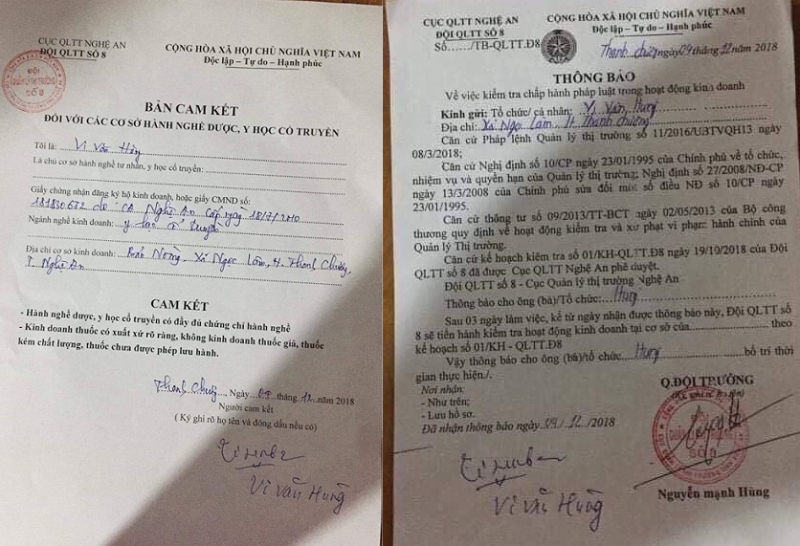 CỤC QLTT NGHỆ AN
ĐỘI QLTT SỐ 8
CỘNG HÒA XÃ HỘI CHỦ NGHĨA VIỆT NAM
Độc lập - Tự do - Hạnh phúc
ĐỘI
QUẢN LÝ THỊ TRƯỜNG
SỐ 8
BẢN CAM KẾT
ĐỐI VỚI CÁC CƠ SỞ HÀNH NGHỀ DƯỢC, Y HỌC CỔ TRUYỀN
Tôi là: Vi Văn Hùng
Là chủ cơ sở hành nghề tư nhân, y học cổ truyền:
Giấy chứng nhận đăng ký hộ kinh doanh, hoặc giấy CMND số:
181830672 do CA Nghệ An Cấp ngày 18/7/2010
Ngành nghề kinh doanh: y học cổ truyền
Địa chỉ cơ sở kinh doanh: Bản Nòng, Xã Ngọc Lâm, H. Thanh Chương,
T. Nghệ An
CAM KẾT
- Hành nghề dược, y học cổ truyền có đầy đủ chứng chỉ hành nghề
- Kinh doanh thuốc có xuất xứ rõ ràng, không kinh doanh thuốc giả, thuốc
kém chất lượng, thuốc chưa được phép lưu hành.
Thanh Chương, Ngày tháng 12 năm 2018
Người cam kết
( Ký ghi rõ họ tên và đóng dấu nếu có)
Vi Văn Hùng
CỤC QLTT NGHỆ AN
ĐỘI QLTT SỐ 8
Số....../TB-QLTT.Đ8
CỘNG HÒA XÃ HỘI CHỦ NGHĨA VIỆT NAM
Độc lập - Tự do - Hạnh phúc
Thanh Chương ngày 04 tháng 12 năm 2018
THÔNG BÁO
Về việc kiểm tra chấp hành pháp luật trong hoạt động kinh doanh
Kính gửi: Tổ chức/ cá nhân: Vi Văn Hùng
Địa chỉ: Xã Ngọc Lâm, H. Thanh Chương
Căn cứ Pháp lệnh Quản lý thị trường số 11/2016/UBTVQH13 ngày
08/3/2018;
Căn cứ Nghị định số 10/CP ngày 23/01/1995 của Chính phủ về tổ chức,
nhiệm vụ và quyền hạn của Quản lý thị trường; Nghị định số 27/2008/NĐ-CP
ngày 13/3/2008 của Chính phủ sửa đổi một số điều NĐ số 10/CP ngày
23/01/1995.
Căn cứ thông tư số 09/2013/TT-BCT ngày 02/05/2013 của Bộ công
thương quy định về hoạt động kiểm tra và xử phạt vi phạm hành chính của
Quản lý Thị trường.
Căn cứ kế hoạch kiểm tra số 01/KH-QLTT.Đ8 ngày 19/10/2018 của Đội
QLTT số 8 đã được Cục QLTT Nghệ An phê duyệt.
Đội QLTT số 8 - Cục Quản lý thị trường Nghệ An
Thông báo cho ông (bà)/Tổ chức: Hùng
Sau 03 ngày làm việc, kể từ ngày nhận được thông báo này, Đội QLTT số
8 sẽ tiến hành kiểm tra hoạt động kinh doanh tại cơ sở của.......... theo
kế hoạch số 01/KH - QLTT.Đ8
Vậy thông báo cho ông (bà)/tổ chức Hùng bố trí thời
gian thực hiện./.
Nơi nhận:
- Như trên;
- Lưu hồ sơ.
Đã nhận thông báo ngày 04/12/2018
Q.ĐỘI TRƯỞNG
SỐ 8
Nguyễn mạnh Hùng
Vi Văn Hùng